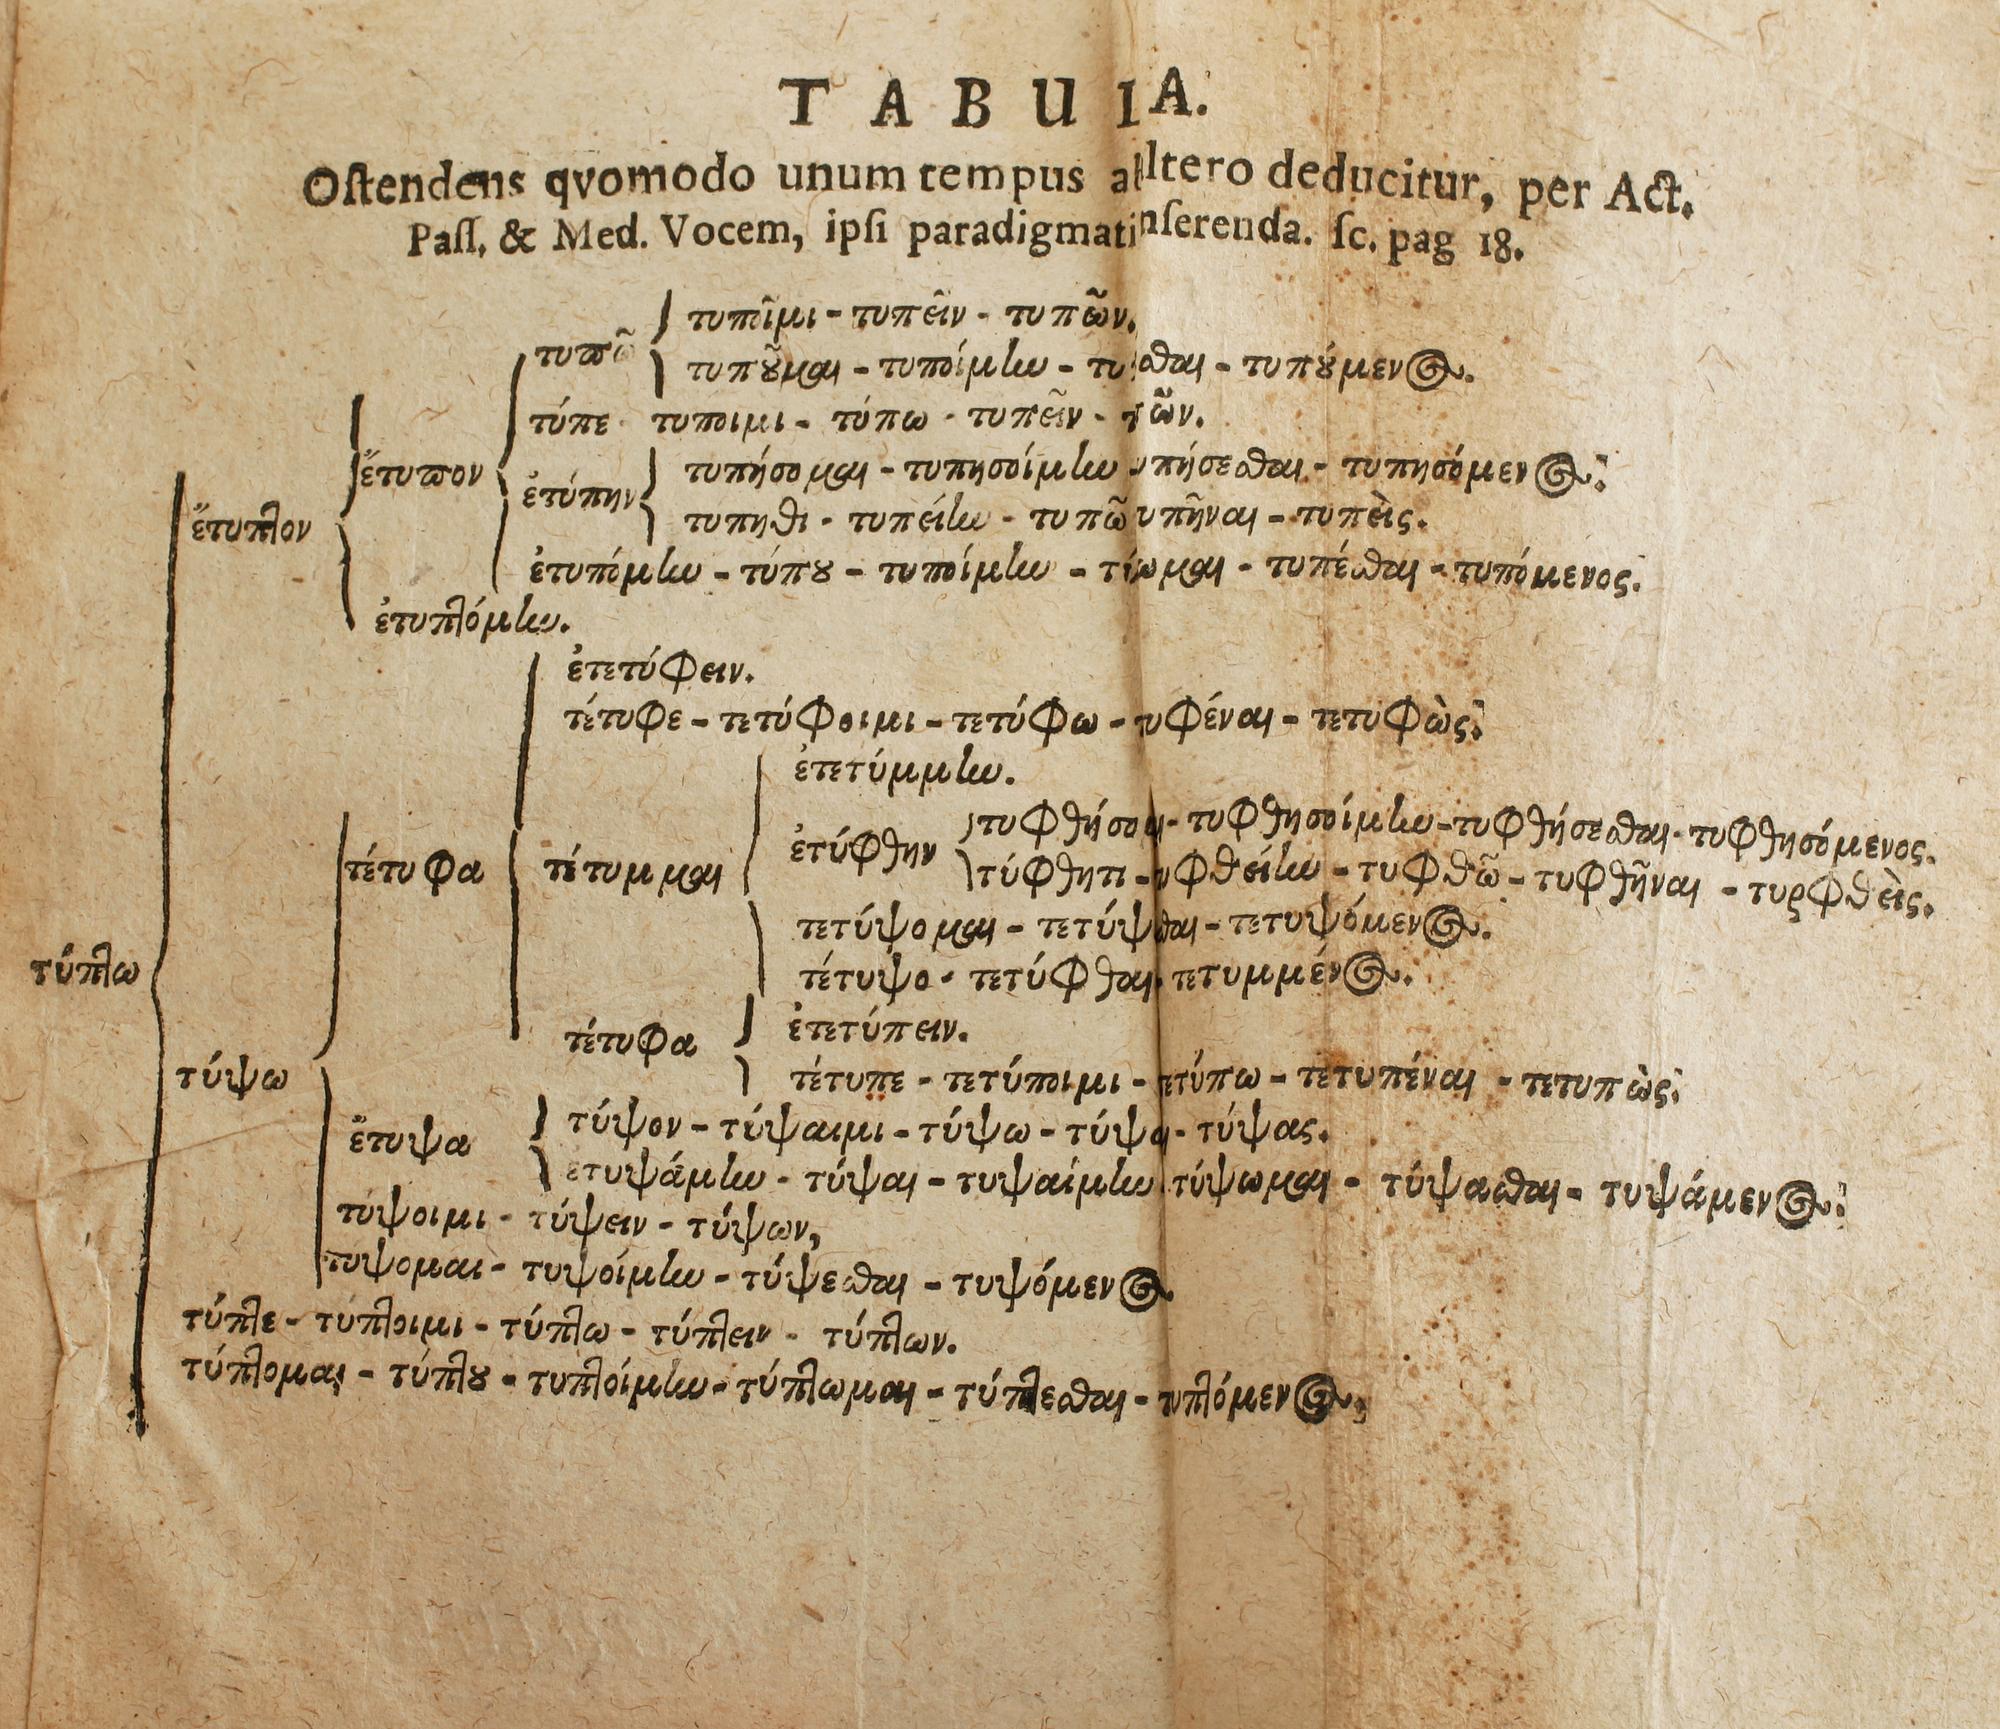 TABULA.
Oſtendens qvomodo unum tempus ab altero deducitur, per Act.
Paſſ. & Med. Vocem, ipſi paradigmati inſerenda. ſc. pag 18.
τυποῖμι - τυπεῖν - τυπῶν.
τυπῶ
τυποῦμαι - τυποίμην - - τυπούμενος.
τύπε τυποιμι - τύπω - τυπεῖν -
ἔτυπον
τυπήσομαι - τυπησοίμην τυπήσεσθαι - τυπησόμενος.
ἐτύπην
ἔτυπτον
τυπηθι - τυπείην - τυπῶ τυπῆναι - τυπεὶς.
ἐτυπόμην - τύπου - τυποίμην - - τυπέσθαι - τυπόμενος.
ἐτυπτόμην.
ἐτετύφειν.
τέτυφε - τετύφοιμι - τετύφω - τετυφέναι - τετυφὼς.
ἐτετύμμην.
τυφθήσομαι - τυφθησοίμην - τυφθήσεσθαι - τυφθησόμενος.
ἐτύφθην
τέτυφα
τέτυμμαι
τύφθητι - τυφθείην - τυφθῶ - τυφθῆναι - τυρφθεὶς.
τετύψομαι - τετύψεσθαι - τετυψόμενος.
τύπτω
τέτυψο - τετύφθαι - τετυμμένος.
ἐτετύπειν.
τέτυφα
τύψω
τέτυπε - τετύποιμι - τετύπω - τετυπέναι - τετυπὼς.
τύψον - τύψαιμι - τύψω - τύψαι - τύψας.
ἔτυψα
ετυψάμην - τύψαι - τυψαίμην τύψωμαι - τύψασθαι - τυψάμενος.
τύψοιμι - τύψειν - τύψων,
τυψομαι - τυψοίμην - τύψεσθαι - τυψόμενος
τύπτε - τυπτοιμι - τύπτω - τύπτειν - τύπτων.
τύπτομαι - τύπτου - τυπτοίμην - τύπτωμαι - τύπτεσθαι - τυπτόμενος.